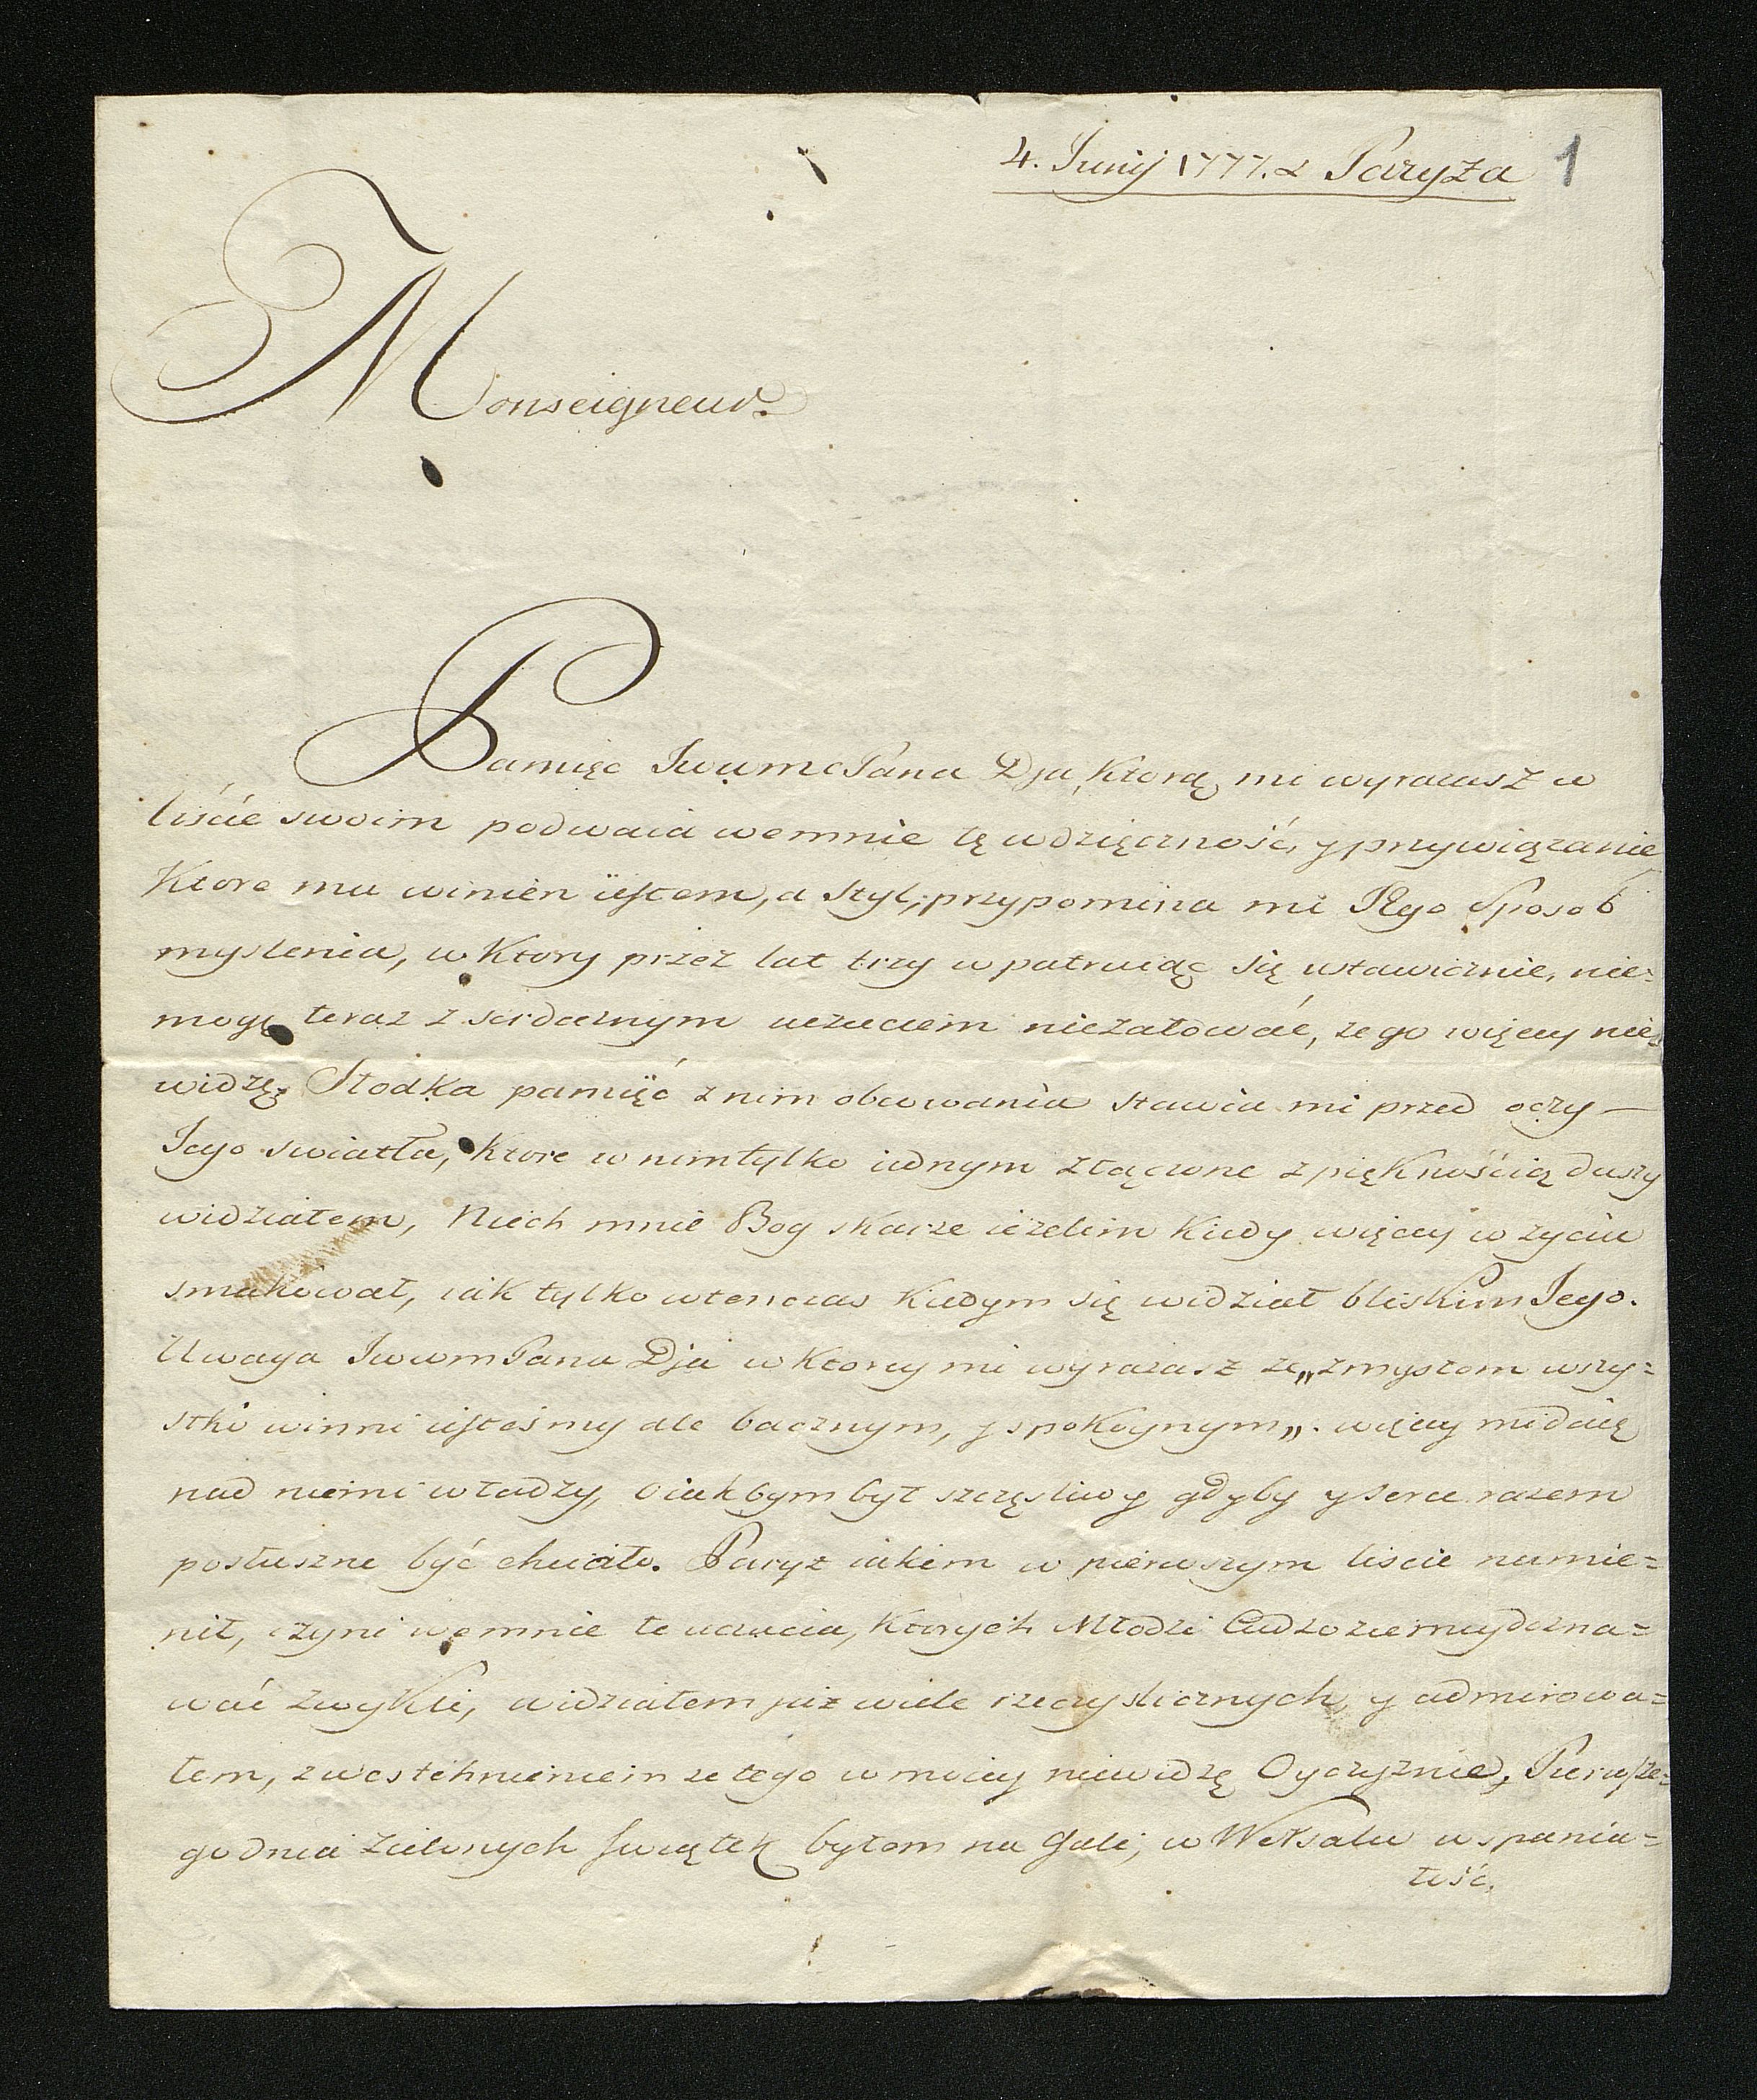 4. Junij 1777. z Paryża 1
Monseigneur.
Pamięc JwwmcPana Dja, ktorą mi wyrazasz w
liście swoim podwaia wemnie tę wdzięczność, y przywiązanie
Ktore mu winien iestem, a Styl, przypomina mi Jego Sposob
myslenia, w Ktory przez lat trzy wpatruiąc się ustawicznie, nie=
mogę teraz z serdecznym uczuciem nieżałować, ze go więcey nie=
widzę. Słodka pamięć z nim obcowania stawia mi przed oczy —
Jego swiatła, ktore w nim tylko iednym złączone z pięknością duszy
widziałem, Niech mnie Bog skarze iezelim Kiedy więcey w zyciu
smakował, iak tylko wtenczas Kiedym się widział bliskim Jego.
Uwaga JwwmPana Dja w Ktorey mi wyrazasz ze „zmysłom wszy=
stki winni iestesmy ale bacznym, y spokoynym„. więcey mi daię
nad niemi władzy, o iak bym był szczęsliwy gdyby y serce razem
posłuszne być chciało. Paryż iakem w pierwszym liscie namie=
nił, czyni wemnie te uczucia, Ktorych Młodzi Cudzoziemcy dozna=
wać zwykli, widziałem już wiele rzeczy slicznych y admirowa=
łem, z westchnieniem ze tego w moiey niewidzę Oyczyznie, Pierwsze=
go dnia Zielonych swiątek byłem na Gali, w Weksalu wspania=
łość,